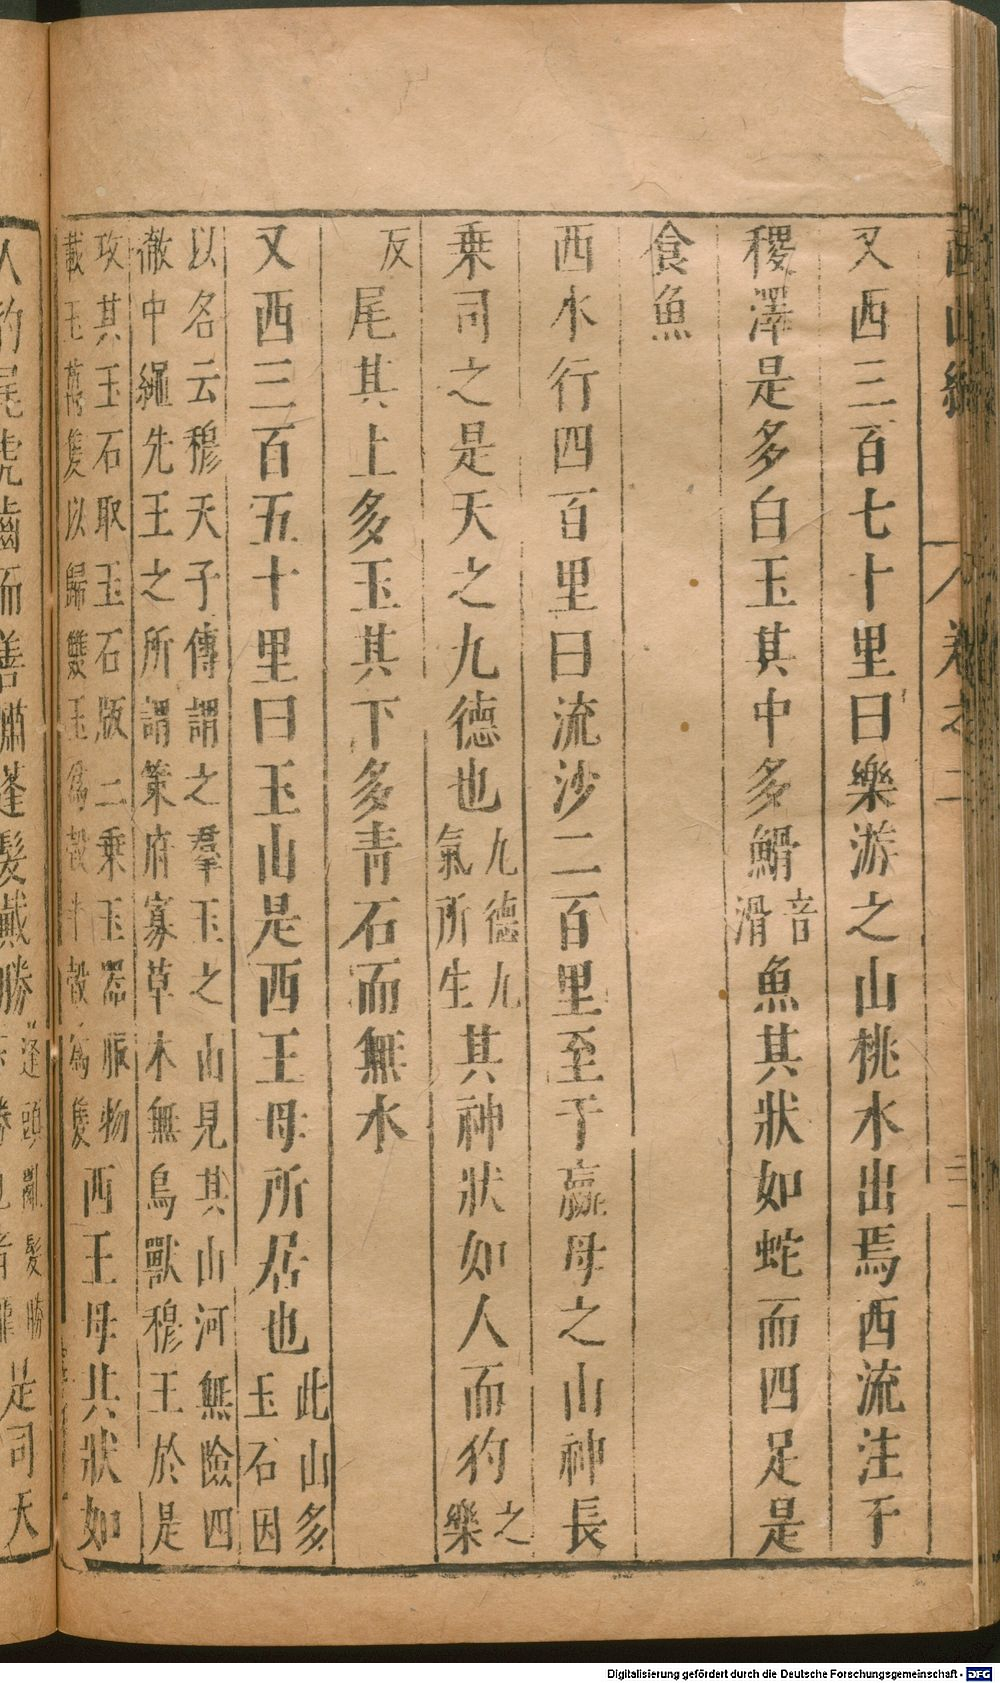 又西三百七十里曰樂游之山桃水出焉西流注于
稷澤是多白玉其中多䱻音滑魚其狀如蛇而四足是
食魚
西水行四百里曰流沙二百里至于嬴母之山神長
乗司之是天之九德也九德九氣所生其神狀如人而豹之樂
反尾其上多玉其下多青石而無水
又西三百五十里曰玉山是西王母所居也此山多玉石因
以名云穆天子傳謂之羣玉之山見其山河無險四
徹中繩先王之所謂策府寡草木無鳥獸穆王於是
攻其玉石取玉石版三乗玉器服物
載玉萬隻以歸雙玉爲瑴半瑴爲隻西王母其狀如
人豹尾虎齒而善嘯蓬髮戴勝蓬頭亂髮勝是司天
Digitalisierung gefördert durch die Deutsche Forschungsgemeinschaft - DFG